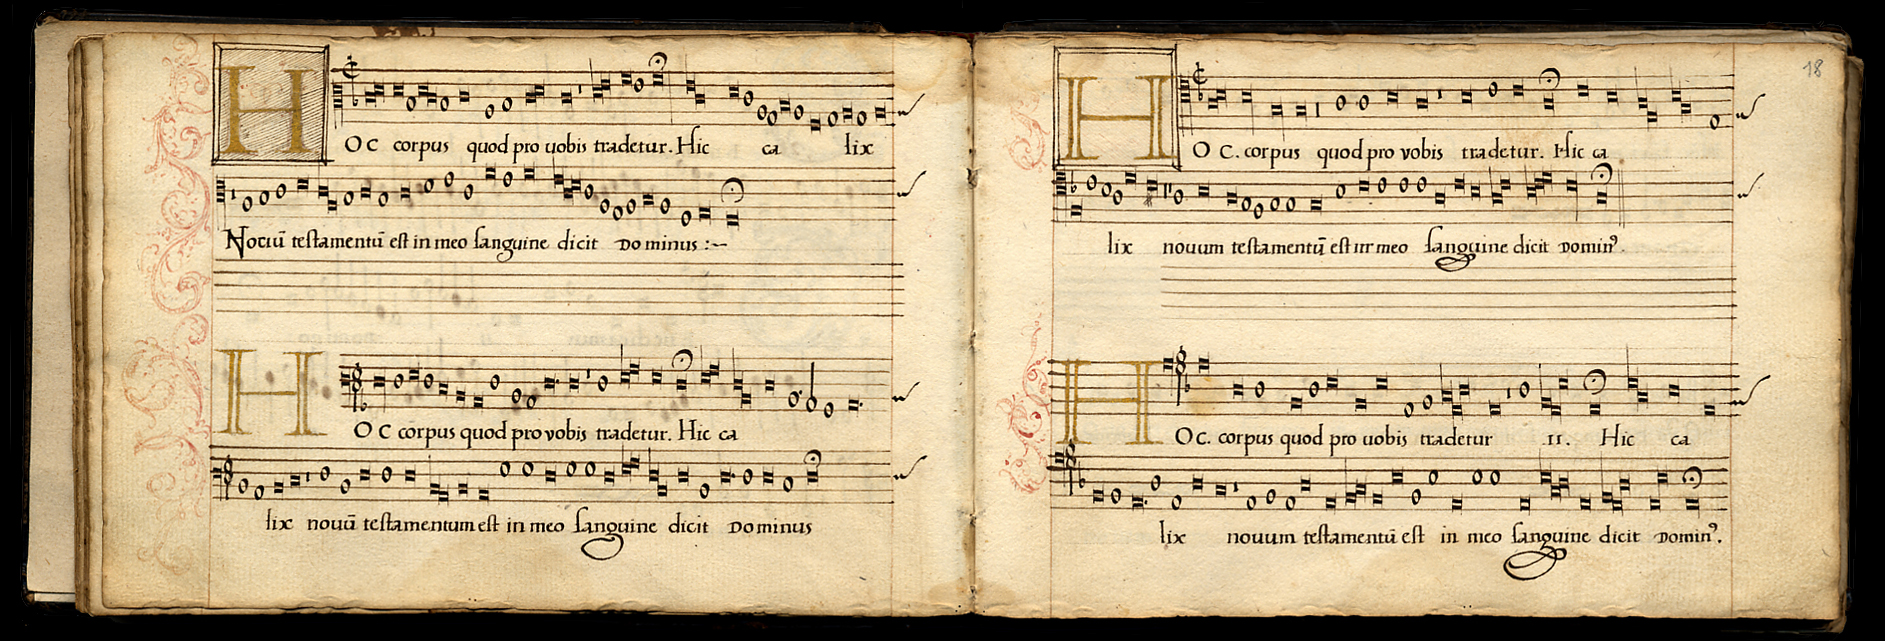 HOC corpus quod pro uobis tradetur. Hic ca lix
Nociū testamentū est in meo sanguine dicit Dominus :~
HOC corpus quod pro vobis tradetur. Hic ca
lix nouū testamentum est in meo sanguine dicit Dominus
18
HOC. corpus quod pro vobis tradetur. Hic ca
lix nouum testamentū est in meo sanguine dicit Dominꝰ.
HOC. corpus quod pro uobis tradetur .ii. Hic ca
lix nouum testamentū est in meo sanguine dicit Dominꝰ.